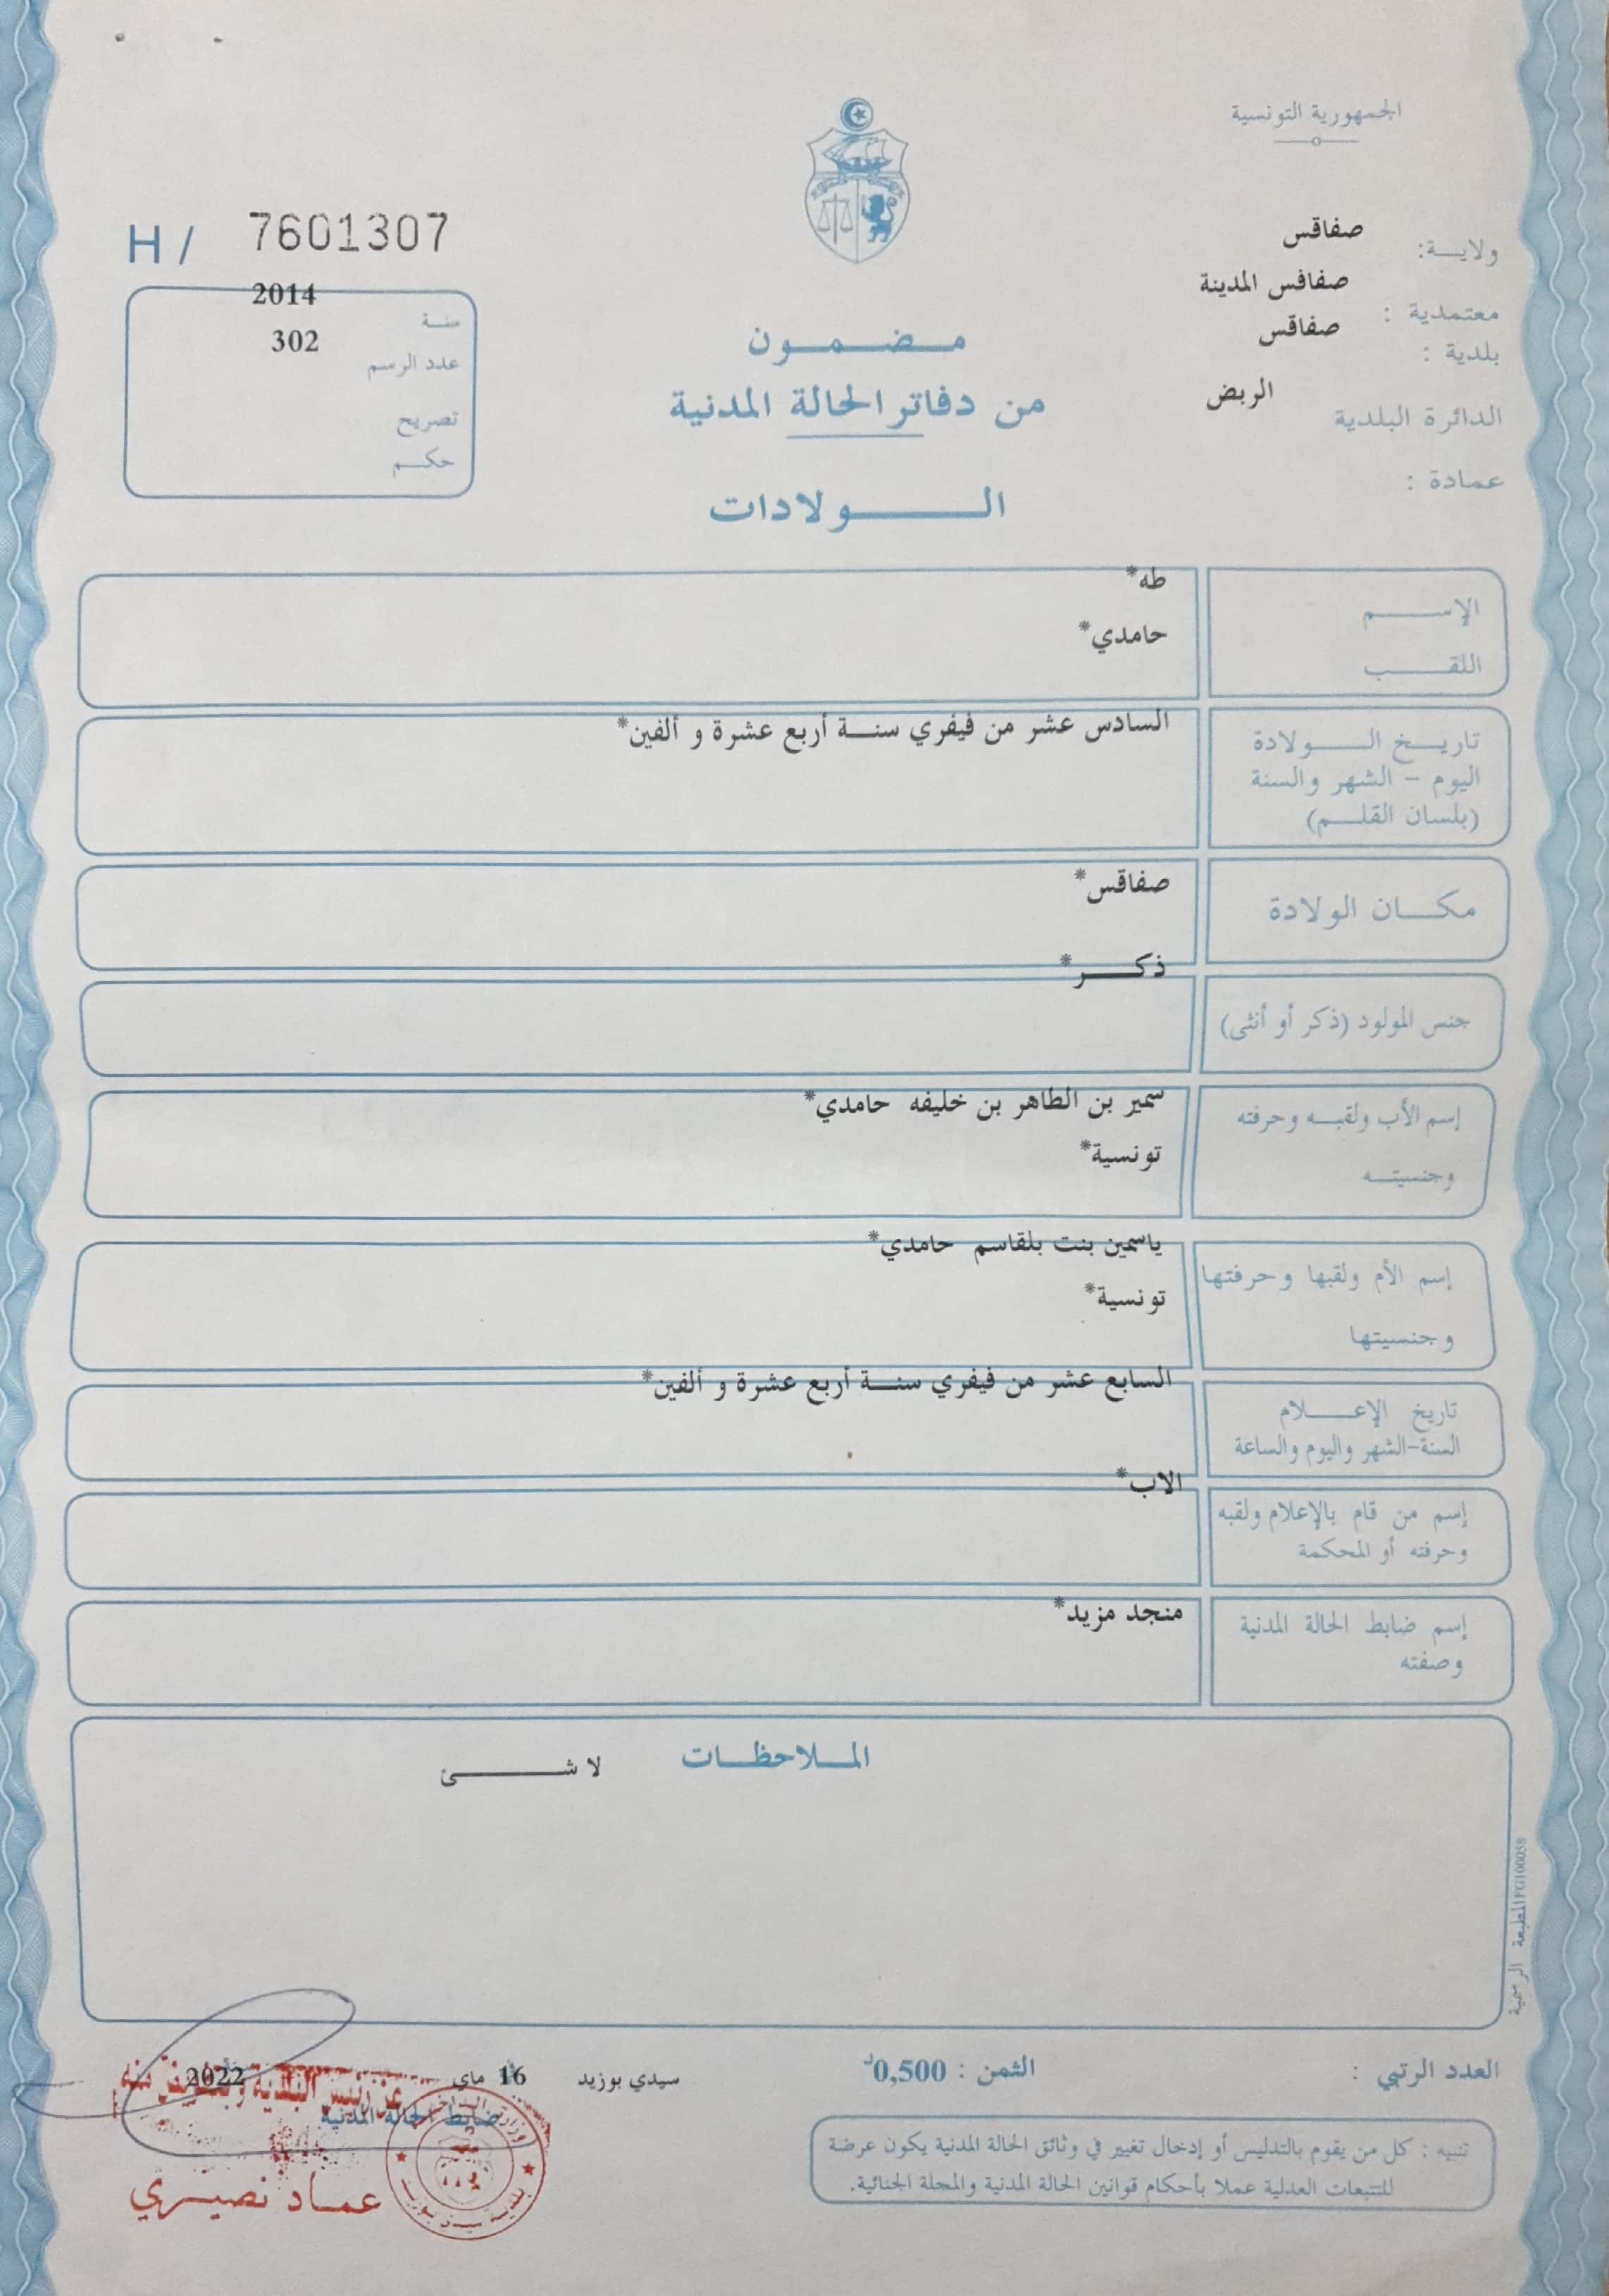 الجمهورية التونسية
ولايـــة: صفاقس
معتمدية : صفاقس المدينة
بلدية : صفاقس
الدائرة البلدية الربض
عمادة :
H / 7601307
سنـة 2014
عدد الرسم 302
تصريح
حكـــم
مـــضـــمـــون
من دفاتر الحالة المدنية
الـــــولادات
الإســـــم طه*
اللقــــب حامدي*
تاريــخ الـــــولادة السادس عشر من فيفري سنـــة أربع عشرة و ألفين*
اليوم - الشهر والسنة
(بلسان القلـــم)
مكـــان الولادة صفاقس*
جنس المولود (ذكر أو أنثى) ذكـــر*
إسم الأب ولقبـــه وحرفته سمير بن الطاهر بن خليفه حامدي*
وجنسيتـــه تونسية*
إسم الأم ولقبها وحرفتها ياسمين بنت بلقاسم حامدي*
وجنسيتها تونسية*
تاريخ الإعـــــلام السابع عشر من فيفري سنـــة أربع عشرة و ألفين*
السنة-الشهر واليوم والساعة
إسم من قام بالإعلام ولقبه الاب*
وحرفته أو المحكمة
إسم ضابط الحالة المدنية منجد مزيد*
وصفته
المـــلاحظـــات لا شـــــئ
المطبعة الرسمية FG100058
العدد الرتبي :
الثمن : 0,500د
سيدي بوزيد 16 ماي 2022
عن رئيس البلدية وبتفويض منه
ضابط الحالة المدنية
عمـاد نصيـــري
تنبيه : كل من يقوم بالتدليس أو إدخال تغيير في وثائق الحالة المدنية يكون عرضة
للتتبعات العدلية عملا بأحكام قوانين الحالة المدنية والمجلة الجنائية.